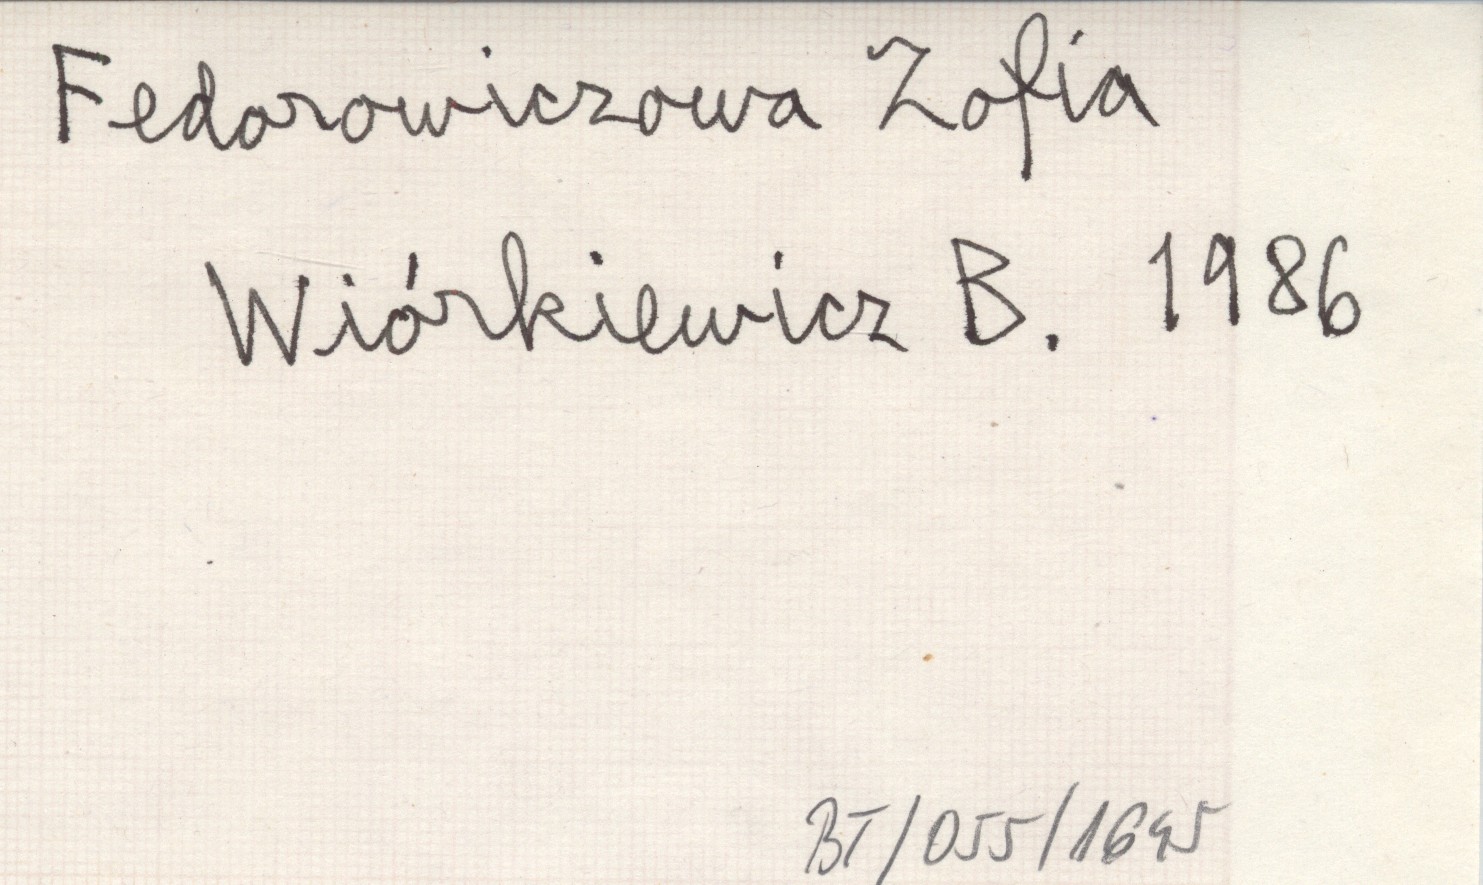 Fedorowiczowa Zofia
Wiórkiewicz B. 1986
BT/055/1695